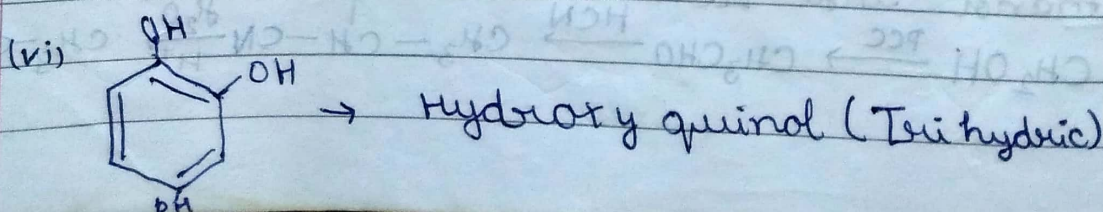 OH
(vi)
OH
→ Hydroxy quinol (Tri hydric)
OH